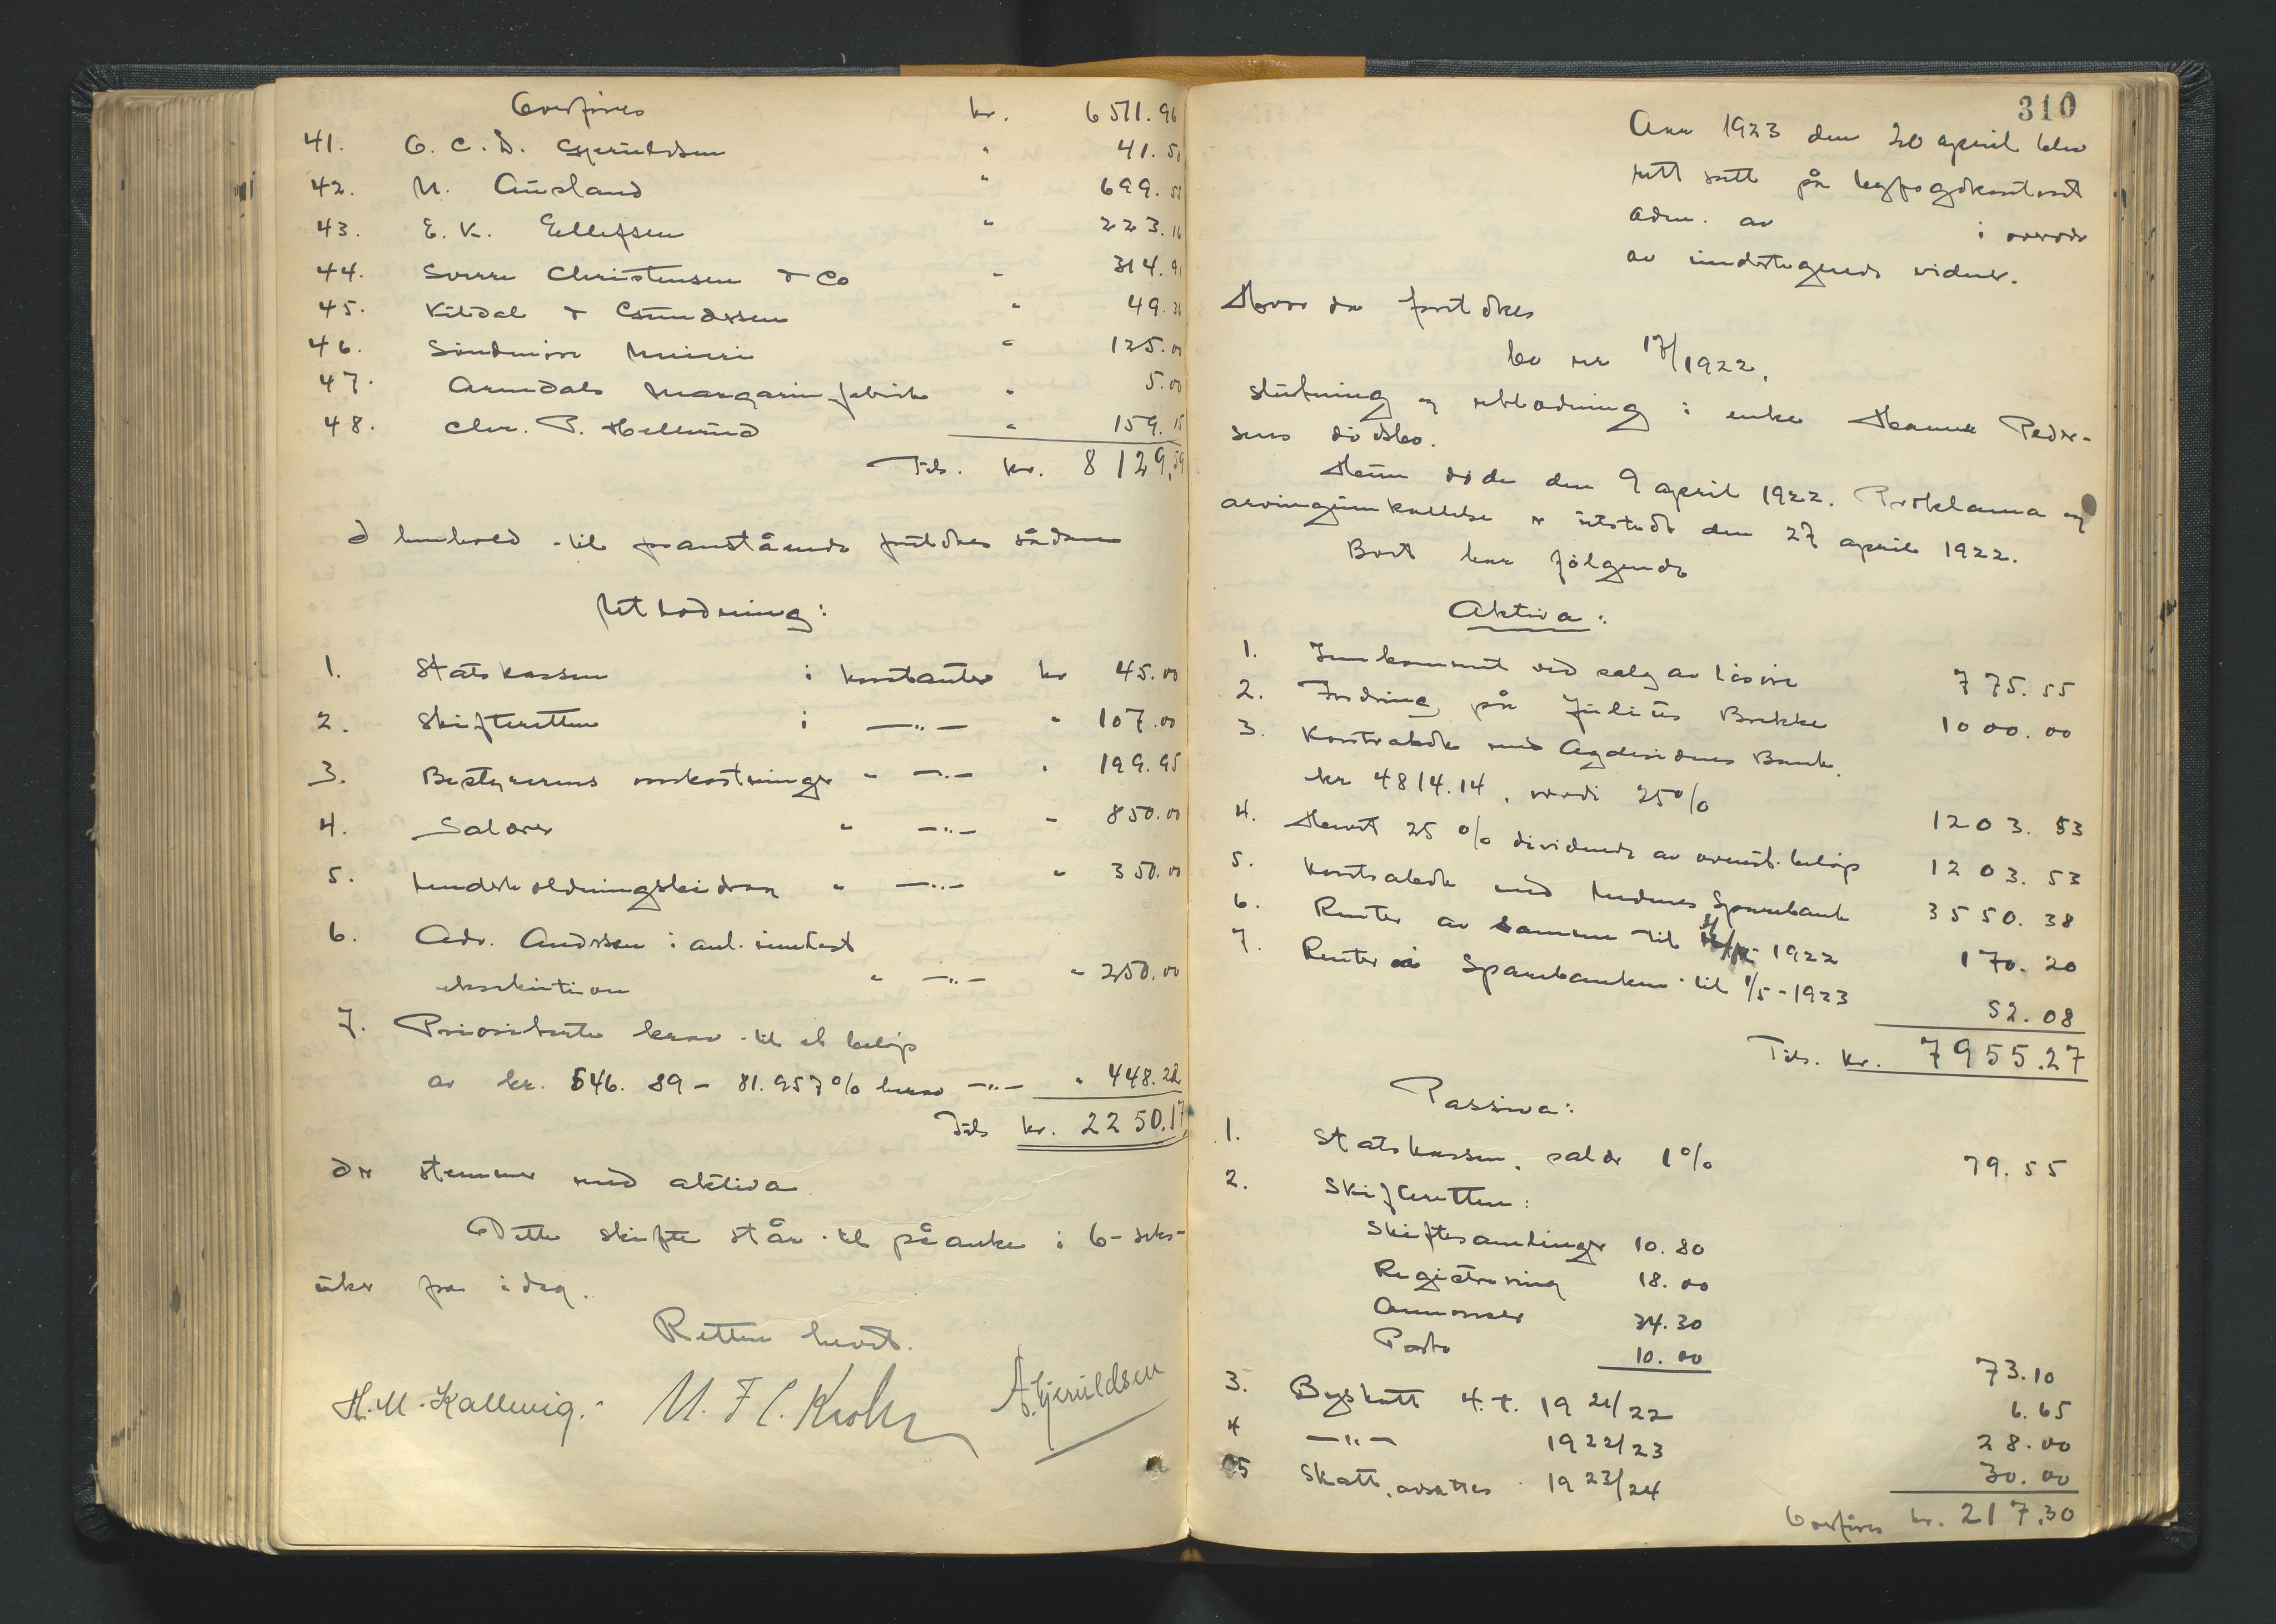 Overføres kr. 6511.96
41. O. C. D. Gjeruldsen " 41.50
42. N. Ausland " 699.55
43. E. K. Ellefsen " 223.16
44. Sverre Christensen & Co " 314.91
45. Kildal & Gundersen " 49.36
46. Søndmøre Meieri " 125.00
47. Arendals Margarinfabrik " 5.00
48. Chr. P. Hellerud " 159.15
Tils. kr. 8129,59
I henhold til foranstående foretokes sådan
utlodning:
1. Statskassen i kontanter kr 45.00
2. Skifteretten i —"— " 107.00
3. Bestyrerens omkostninger " —"— " 199.95
4. Salærer " —"— " 850.00
5. Underholdningsbidrag " —"— " 350.00
6. Adv. Anderssen i anl. inntast
eksekution " —"— " 250.00
7. Prioriterte krav til et beløp
av kr. 546.89 - 81.957% herav —"— " 448.22
Tils kr. 2250.17
der stemmer med aktiva
Dette skifte står til påanke i 6-seks-
uker fra idag.
Retten hevet.
H. M. Kallevig. N. F. C. Krohn A. Gjeruldsen
310
Aar 1923 den 20 april blev
rett satt på byfogdkontoret
adm. av i overvær
av undertegnede vidner.
Hvor da foretokes
bo nr 17/1922,
slutning og utlodning i enke Hanna Peder-
sens dødsbo.
Hun døde den 9 april 1922. Proklama og
arvinginnkallelse er utstedt den 27 april 1922.
Boet har følgende
Aktiva:
1. Innkommet ved salg av løsøre 775.55
2. Fordring på Julius Brekke 1000.00
3. Kontrabok med Agdesidens Bank
kr 4814.14, verdi 25% 1203.53
4. Hevet 25 % dividende av ovenst. beløp 1203.53
5. Kontrabok med Nedenes Sparebank 3550.38
6. Renter av samme til 1922 170.20
7. Renter i Sparebanken til 1/5-1923 52.08
Tils. kr. 7955.27
Passiva:
1. Statskassen, salær 1% 79.55
2. Skifteretten:
Skiftesamlinger 10.80
Registrering 18.00
Annonser 34.30
Porto 10.00 73.10
3. Byskatt 4. t. 1921/22 6.65
4 —"— 1922/23 28.00
5 Skatt, avsættes 1923/24 30.00
Overføres kr. 217.30